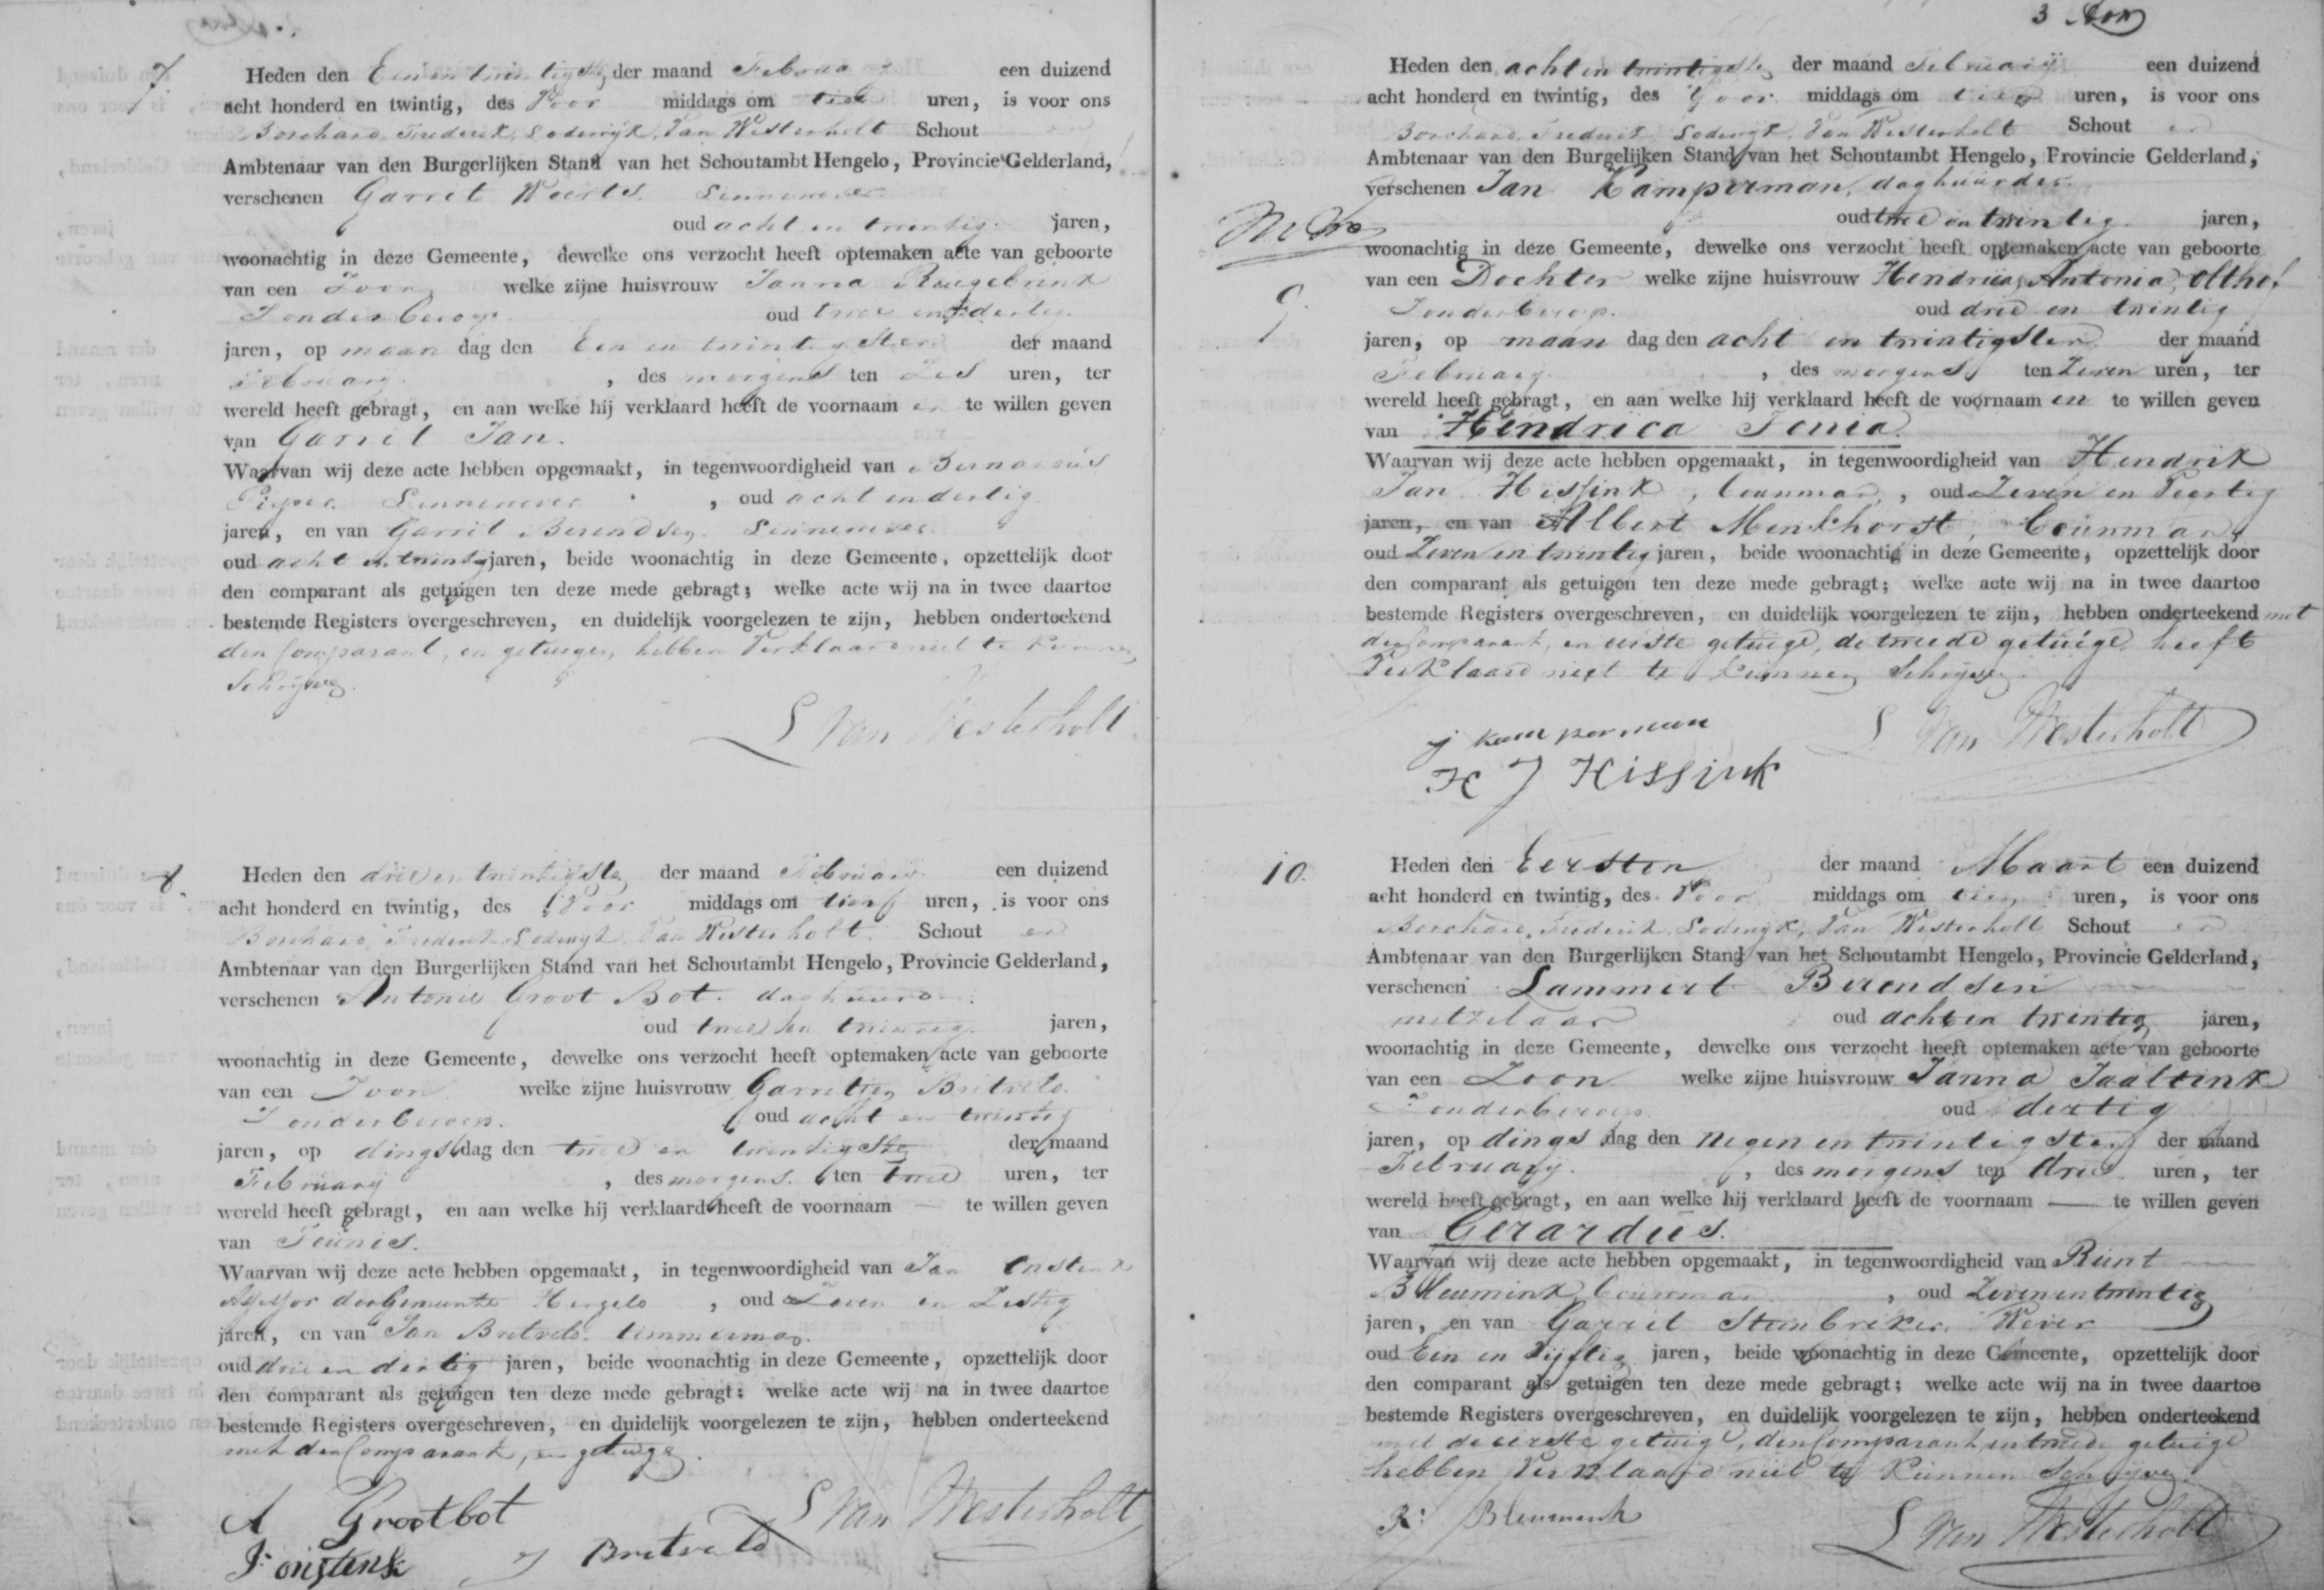 7.
Heden den Een en twintigste der maand Februa een duizend
acht honderd en twintig, des Voor middags om tien uren, is voor ons
Borchard Frederik Lodewijk Van Westerholt Schout en
Ambtenaar van den Burgerlijken Stand van het Schoutambt Hengelo, Provincie Gelderland,
verschenen Garret Weerts. Linnenwever
oud acht en twintig jaren,
woonachtig in deze Gemeente, dewelke ons verzocht heeft optemaken acte van geboorte
van een Zoon welke zijne huisvrouw Janna
Zonder beroep. oud twee en dertig
jaren, op maan dag den Een en twintigsten der maand
February , des morgens ten Zes uren, ter
wereld heeft gebragt, en aan welke hij verklaard heeft de voornaam en te willen geven
van Garrit Jan.
Waarvan wij deze acte hebben opgemaakt, in tegenwoordigheid van Bernardus
Linnenwever , oud acht en dertig
jaren, en van Garrit Berendsen. Linnenwever
oud acht en twintig jaren, beide woonachtig in deze Gemeente, opzettelijk door
den comparant als getuigen ten deze mede gebragt; welke acte wij na in twee daartoe
bestemde Registers overgeschreven, en duidelijk voorgelezen te zijn, hebben onderteekend
den Comparant, en getuigen hebben Verklaard niet te kunnen
Schrijven.
L Van Westerholt
8.
Heden den drie en twintigste der maand Februari een duizend
acht honderd en twintig, des Voor middags om tien uren, is voor ons
Borchard Frederik Lodewijk Van Westerholt. Schout en
Ambtenaar van den Burgerlijken Stand van het Schoutambt Hengelo, Provincie Gelderland,
verschenen Antonie Groot Bot. daghuurder.
oud twee en twintig jaren,
woonachtig in deze Gemeente, dewelke ons verzocht heeft optemaken acte van geboorte
van een Zoon welke zijne huisvrouw Garritjen Bretveld.
Zonder beroep. oud acht en twintig
jaren, op dings dag den twee en twintigste der maand
February , des morgens. ten twee uren, ter
wereld heeft gebragt, en aan welke hij verklaard heeft de voornaam — te willen geven
van Teunis.
Waarvan wij deze acte hebben opgemaakt, in tegenwoordigheid van Jan Onstenk
Assessor der Gemeente Hengelo , oud Zeven en Zestig
jaren, en van Jan Bretveld. timmerman.
oud drie en dertig jaren, beide woonachtig in deze Gemeente, opzettelijk door
den comparant als getuigen ten deze mede gebragt; welke acte wij na in twee daartoe
bestemde Registers overgeschreven, en duidelijk voorgelezen te zijn, hebben onderteekend
met den Comparant, en getuige.
A Grootbot L Van Westerholt
J: onstenk J Bretveld
3
Heden den acht en twintigste der maand February een duizend
acht honderd en twintig, des Voor middags om tien uren, is voor ons
Borchard Frederik Lodewijk Van Westerholt Schout en
Ambtenaar van den Burgelijken Stand van het Schoutambt Hengelo, Provincie Gelderland,
verschenen Jan Kamperman, daghuurder.
oud twee en twintig jaren,
woonachtig in deze Gemeente, dewelke ons verzocht heeft optemaken acte van geboorte
9.
van een Dochter welke zijne huisvrouw Hendrica Antonia Olthof
Zonder beroep. oud drie en twintig
jaren, op maan dag den acht en twintigsten der maand
February , des morgens ten Zeven uren, ter
wereld heeft gebragt, en aan welke hij verklaard heeft de voornaam en te willen geven
van Hendrica Tenia.
Waarvan wij deze acte hebben opgemaakt, in tegenwoordigheid van Hendrik
Jan Hissink, bouwman , oud Zeven en Veertig
jaren, en van Albert Menkhorst, bouwman
oud Zeven en twintig jaren, beide woonachtig in deze Gemeente, opzettelijk door
den comparant als getuigen ten deze mede gebragt; welke acte wij na in twee daartoe
bestemde Registers overgeschreven, en duidelijk voorgelezen te zijn, hebben onderteekend met
den Comparant, en eerste getuige, de tweede getuige heeft
Verklaard niet te kunnen Schrijven.
j kamperman L Van Westerholt
H J Hissink
10.
Heden den Eersten der maand Maart een duizend
acht honderd en twintig, des Voor middags om tien uren, is voor ons
Borchard Frederik Lodewijk, Van Westerholt Schout en
Ambtenaar van den Burgerlijken Stand van het Schoutambt Hengelo, Provincie Gelderland,
verschenen Lammert Berendsen
metzelaar oud acht en twintig jaren,
woonachtig in deze Gemeente, dewelke ons verzocht heeft optemaken acte van geboorte
van een Zoon welke zijne huisvrouw Janna Jaaltink
Zonder beroep. oud dertig
jaren, op dings dag den negen en twintigsten der maand
February. , des morgens ten drie uren, ter
wereld heeft gebragt, en aan welke hij verklaard heeft de voornaam — te willen geven
van Gerardus.
Waarvan wij deze acte hebben opgemaakt, in tegenwoordigheid van Reint
Bleumink bouwman , oud Zeven en twintig
jaren, en van Garrit Steenbreker. Wever
oud Een en Vijftig jaren, beide woonachtig in deze Gemeente, opzettelijk door
den comparant als getuigen ten deze mede gebragt; welke acte wij na in twee daartoe
bestemde Registers overgeschreven, en duidelijk voorgelezen te zijn, hebben onderteekend
met de eerste getuige, den Comparant en tweede getuige
hebben Verklaard niet te kunnen Schrijven.
R: Bleumink L Van Westerholt